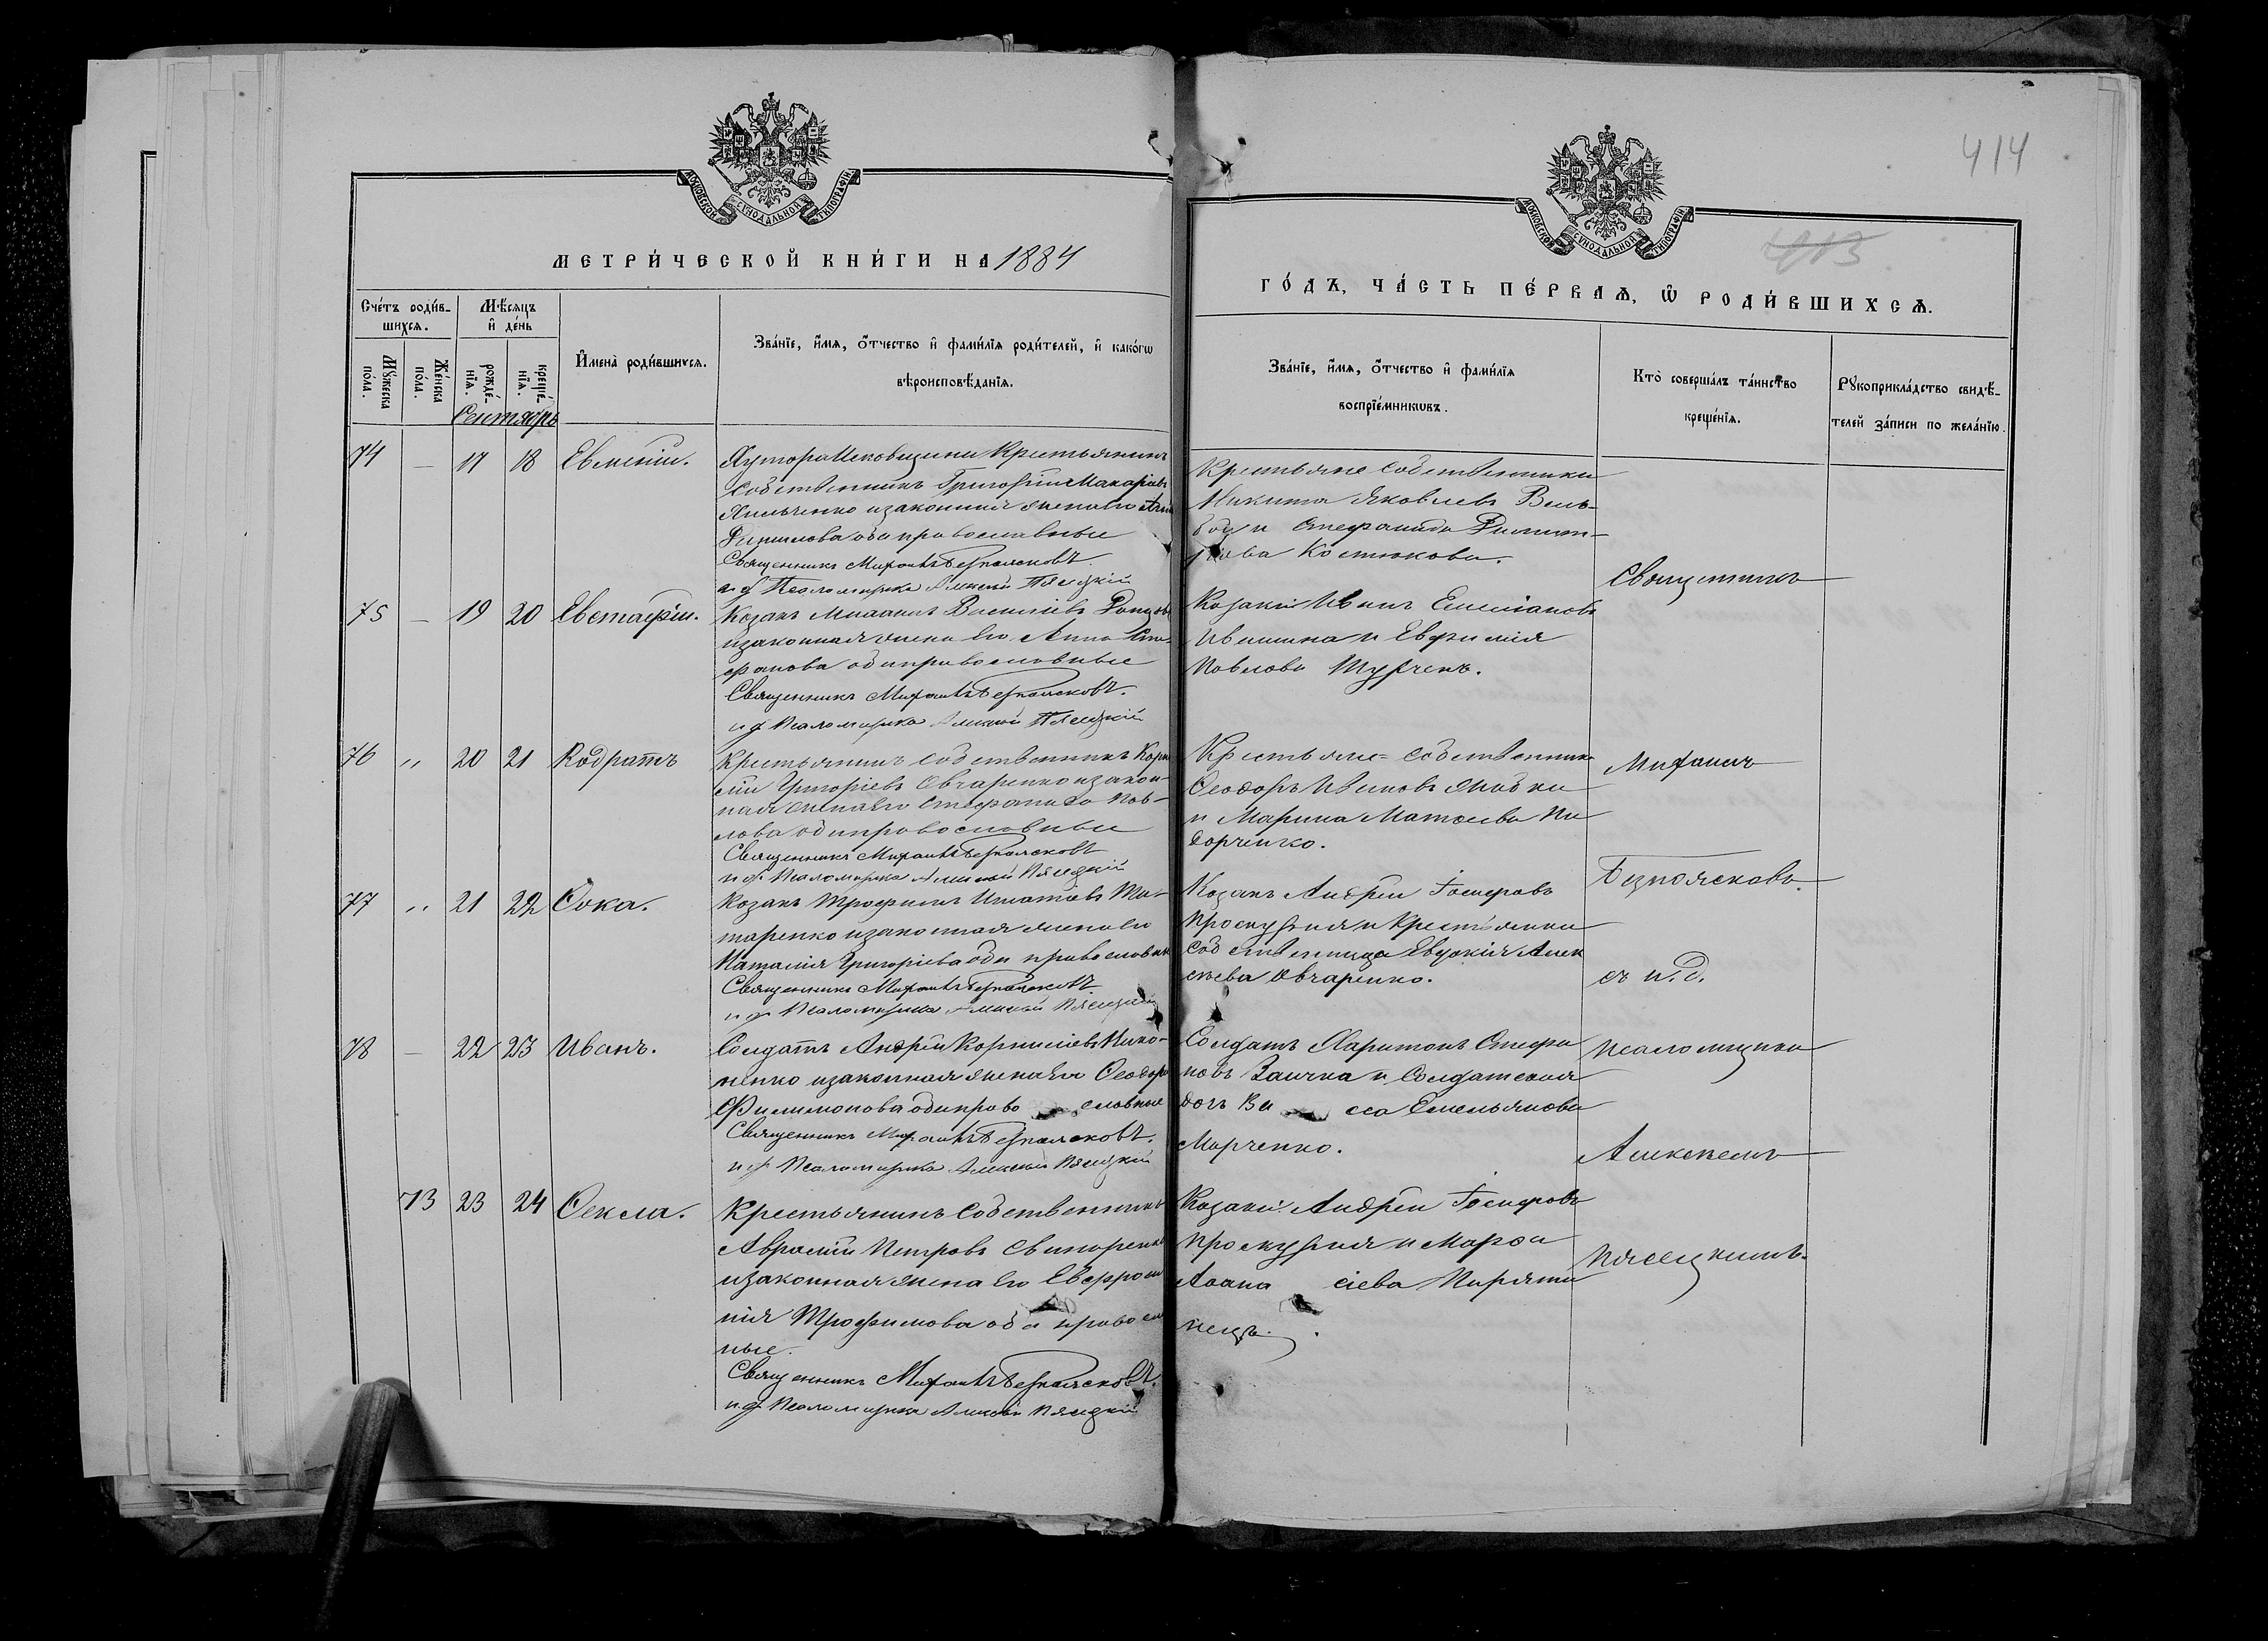 414
413
МОСКОВСКОЙ СѴНОДАЛЬНОЙ ТИПОГРАФІИ
МЕТРИ́ЧЕСКОЙ КНИ́ГИ НА 1884
Сче́тъ роди́в-
шихсѧ.
Мꙋ́жеска
по́ла.
Же́нска
по́ла.
Мѣ́сѧцъ
и҆ де́нь
рожде́-
нїѧ.
креще́-
нїѧ.
И҆мена̀ роди́вшихсѧ.
Зва́нїе, и҆́мѧ, ѻ҆́тчество и҆ фами́лїѧ роди́телей, и҆ како́гѡ
вѣроисповѣ́данїѧ.
Сентябрь
74 — 17 18 Евменій.
Хутора Крестьянинъ
собственникъ Григорій Макаріевъ
Хильченко и законная жена его
оба православные
Священникъ Михаилъ Безпоясковъ.
и. д. Псаломщика Алексѣй Пясецкій
75 — 19 20 Евстафій.
Козакъ Михаилъ Василіевъ
и законная жена его Анна Сте-
фанова оба православные
Священникъ Михаилъ Безпоясковъ.
и. д. Псаломщика Алексѣй Пясецкій
76 „ 20 21 Кодратъ
Крестьянинъ собственникъ Корни
лій Григоріевъ Овчаренко и закон-
ная жена его Стефанида Пав-
лова оба православные
Священникъ Михаилъ Безпоясковъ
и. д. Псаломщика Алексѣй Пясецкій
77 „ 21 22 Ѳока.
Козакъ Трофимъ Игнатіевъ Та-
таренко и законная жена его
Наталія Григоріева оба православн
Священникъ Михаилъ Безпоясковъ
и. д. Псаломщика Алексѣй Пясецкій
78 — 22 23 Иванъ.
Солдатъ Андрей Корниліевъ Нико-
ненко и законная жена его Ѳеодора
Филимонова оба право славные
Священникъ Михаилъ Безпоясковъ.
и. д. Псаломщика Алексѣй Пясецкій
73 23 24 Ѳекла.
Крестьянинъ собственникъ
Авраамій Петровъ Свинаренко
и законная жена его Евфроси
нія Трофимова оба правосл
ные.
Священникъ Михаилъ Безпоясковъ.
и. д. Псаломщика Алексѣй Пясецкій
МОСКОВСКОЙ СѴНОДАЛЬНОЙ ТИПОГРАФІИ
ГО́ДЪ, ЧА́СТЬ ПЕ́РВАѦ, Ѡ҆ РОДИ́ВШИХСѦ.
Зва́нїе, и҆́мѧ, ѻ҆́тчество и҆ фами́лїѧ
воспрїе́мникѡвъ.
Кто̀ соверша́лъ та́инство
креще́нїѧ.
Рꙋкоприкла́дство свидѣ́-
телей за́писи по жела́нїю.
Крестьяне собственники
Никита Яковлевъ
и Стефанида
Костюкова.
Козаки Иванъ Емеліановъ
Ивашина и Евфимія
Павлова Турченъ.
Крестьяне-собственники
Ѳеодоръ Ивановъ
и Марина Матѳеева
Козакъ Андрей Іосифовъ
Проскурня и Крестьянка
собственница Евдокія Алек
сѣева Овчаренко.
Солдатъ Харитонъ Стефа
новъ Заичка и Солдатская
дочь Ва сса Емельянова
Марченко.
Козаки: Андрей Іосифовъ
Проскурня и Марѳа
Аѳана сіева Пиряти
нецъ.
Священникъ
Михаилъ
Безпоясковъ.
съ и. д.
псаломщика
Алексѣемъ
Пясецкимъ.